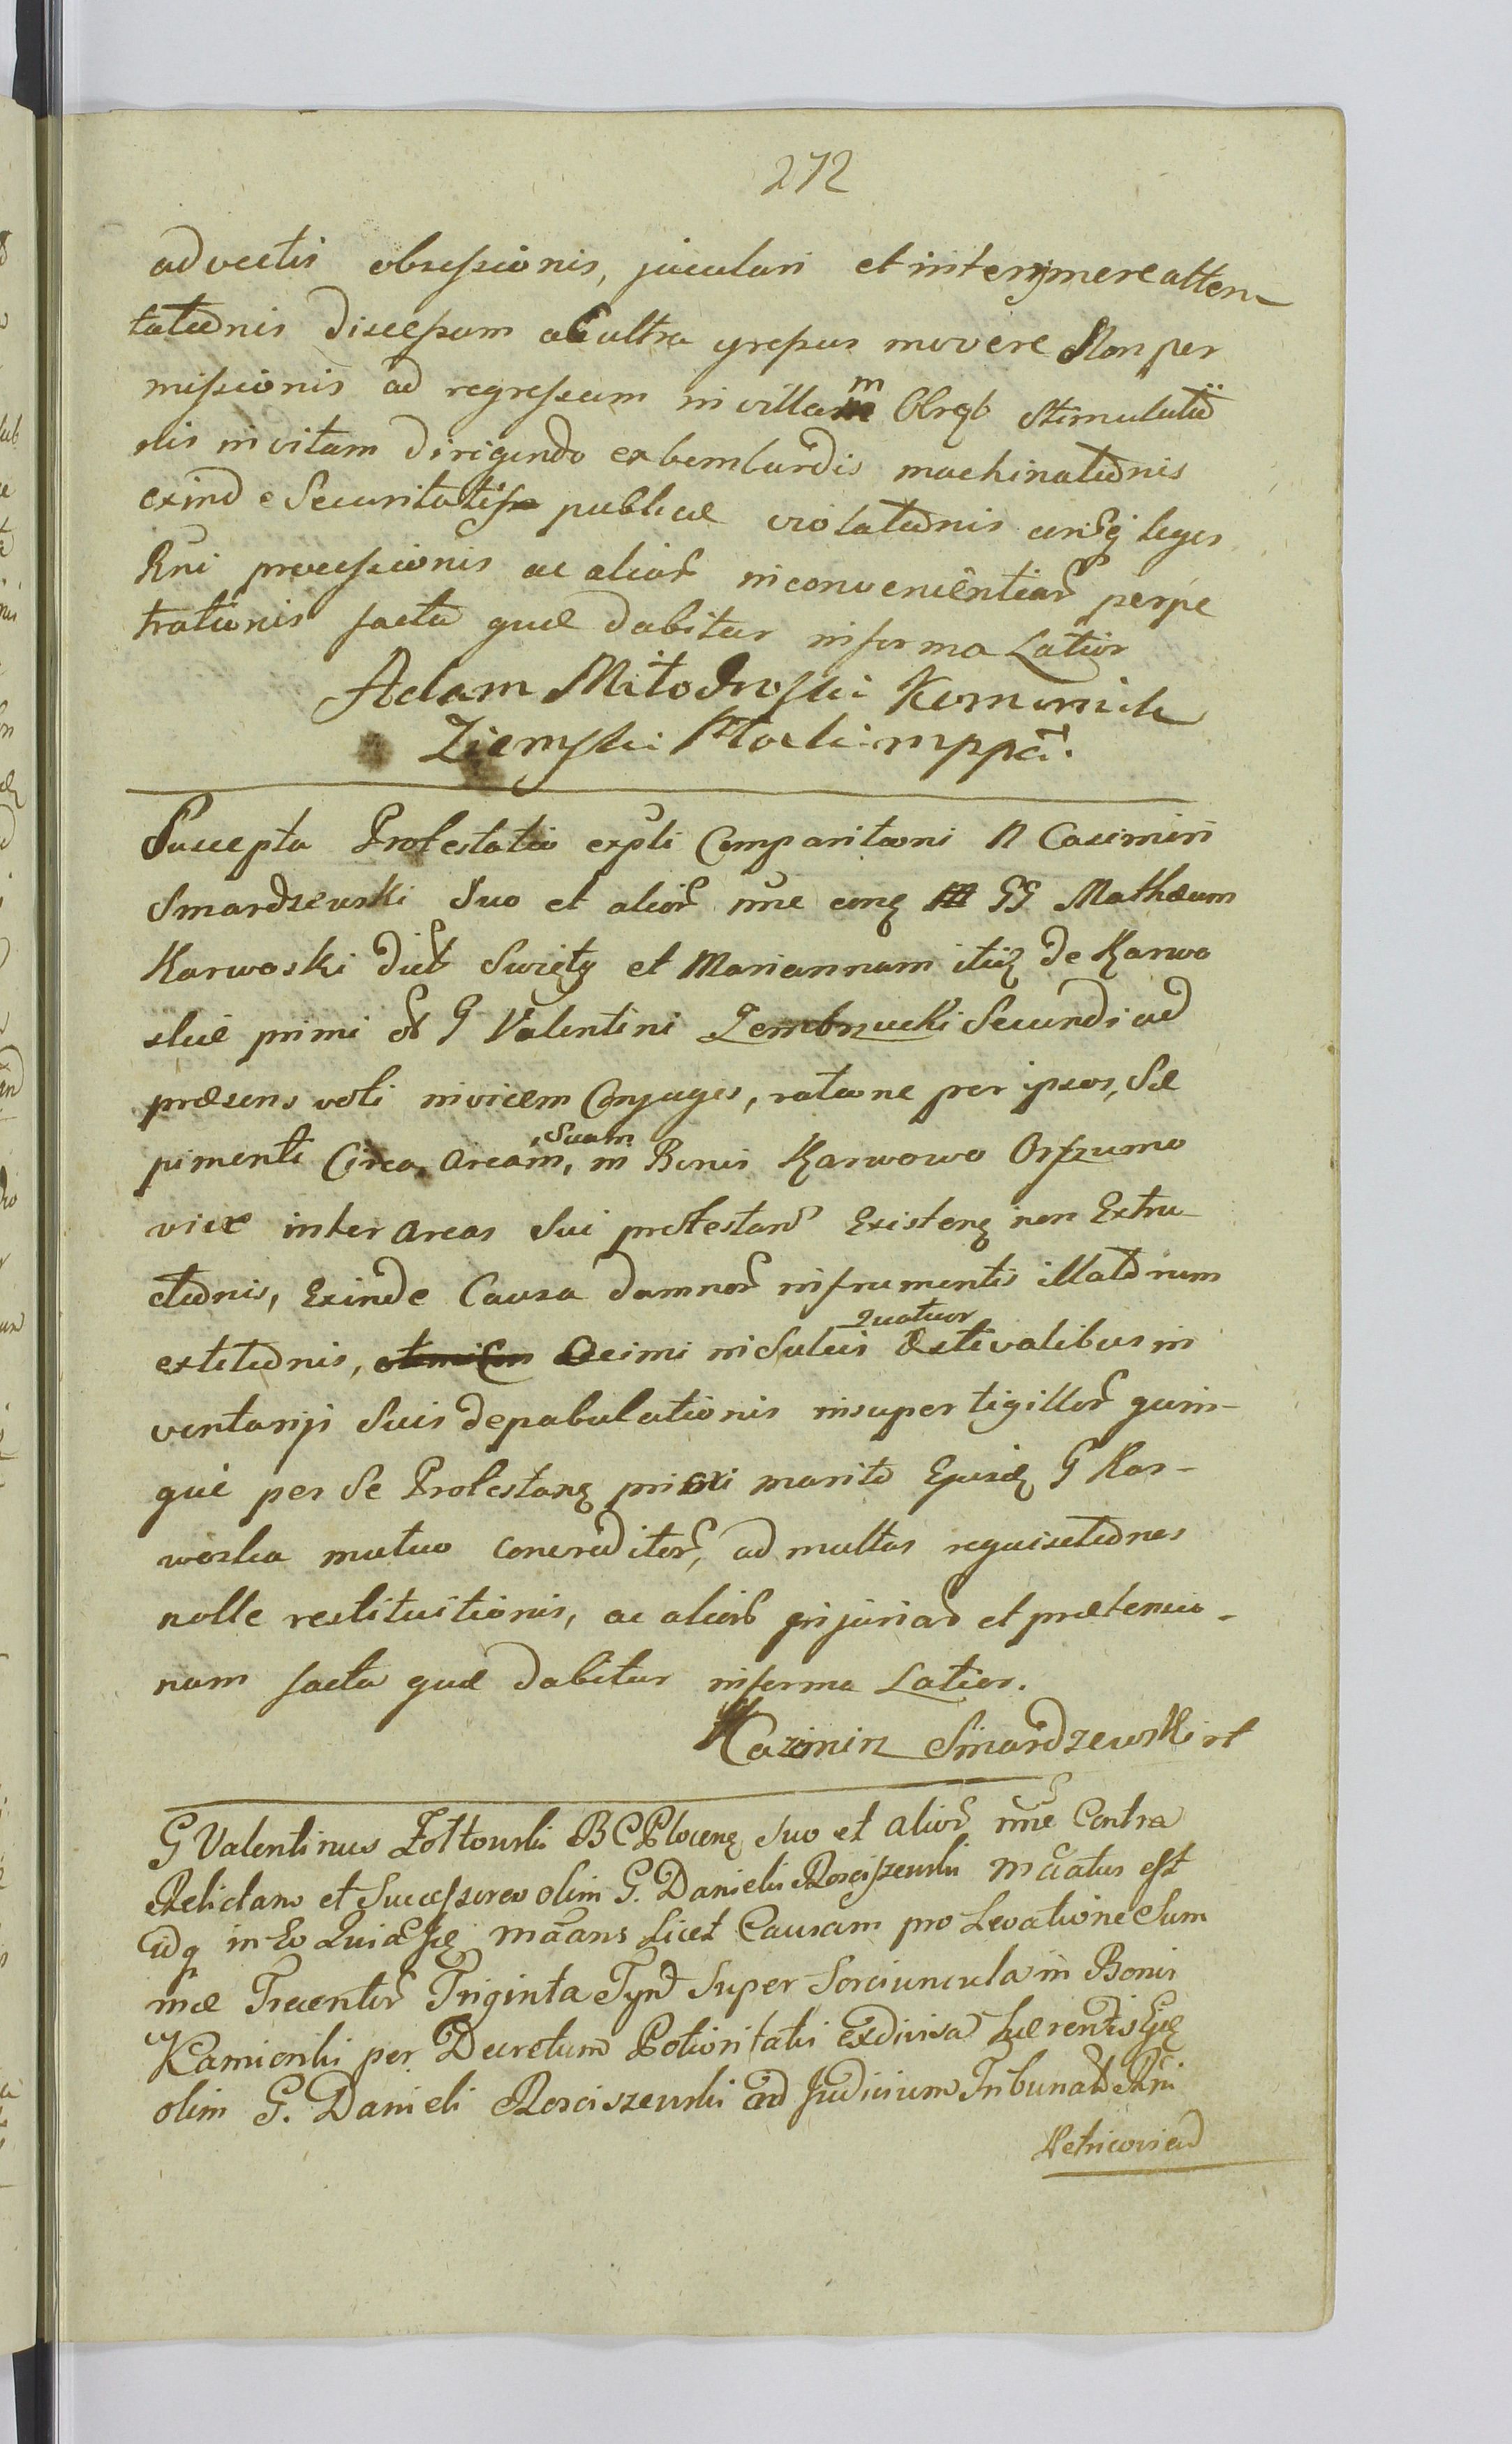 272
advectis obsessionis, jaculari et interjmere atten-
tatõnis discessum ac ultra gressus movere Non per
missionis ad regressum in villam m Obręb stimulatõ
nis in vitam dirigendo ex bombardis machinatõnis
exinde Securitatis publicæ violatõnis contrq leges
Rni processionis ac alior inconvenientiar perpe
trationis facta quæ dabitur in forma Latior
Adam Miłodroski Komornik
Ziemski Płocki mppa.
Suscepta Protestatio expti Comparitioni N Casimiri
Smardzewski Suo et alior nne cong GG Mathæum
Karwoski dict Święty et Mariannam itiq de Karwo
skie primi & G Valentini Zembrzucki Secundi ad
præsens voti invicem Conjuges, ratione per ipsos, Sæ
pimenti Circa Aream, Suam in Bonis Karwowo Orszumo
vice inter Areas Sui protestan Existenq non Extru-
ctõnis, Exinde Causa damnor in frumentis illatõnum
extitõnis, Decimi in Sulcis Quatuor Æstivalibus in
ventarijs Suis depabulationis insuper tigillor quin-
que per Se Protestanq primi marito Ejusdq G Kar-
woska mutuo concreditor, ad multas requisitõnes
nolle restituitionis, ac alior injuriar et prætensio-
num facta quæ dabitur in forma Latior.
Kazimirz Smardzewski
G Valentinus Żółtowski B C Plocenq Suo et alior nne Contra
Relictam et Successores olim G. Danielis Rosciszewski mãatus est
idq in Eo Quia Jpsę mãans licet Causam pro Levatione Sum
mæ Trecentor Triginta Tynf Super Sorciuncula in Bonis
Kamionki per Decretum Potioritatis exdivisa hærentis Ejsdę
olim G. Danieli Rosciszewski ad Judicium Tribunal Rni
Petricovien